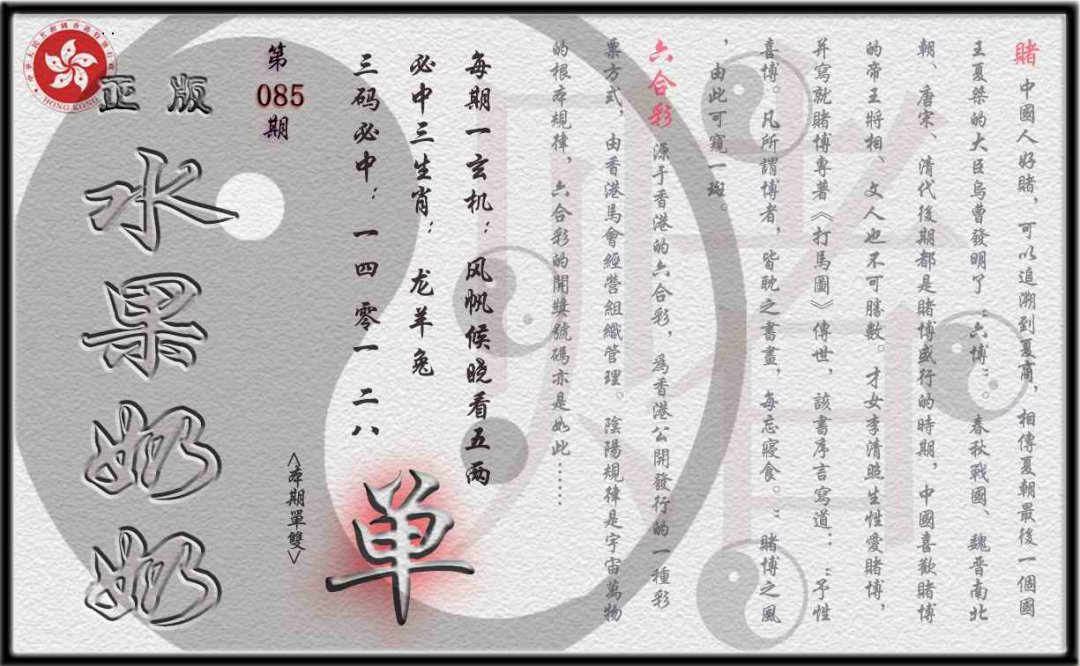 賭 中國人好賭，可以追溯到夏商，相傳夏朝最後一個國
王夏桀的大臣烏曹發明了“六博”。春秋戰國、魏晋南北
朝、唐宋、清代後期都是賭博盛行的時期，中國喜歡賭博
的帝王將相、文人也不可勝數。才女李清照生性愛賭博，
并寫就賭博專著《打馬圖》傳世，該書序言寫道：“予性
喜博。凡所謂博者，皆耽之書畫，每忘寢食。”賭博之風
，由此可窺一斑。
六合彩 源于香港的六合彩，爲香港公開發行的一種彩
票方式，由香港馬會經營組織管理。陰陽規律是宇宙萬物
的根本規律，六合彩的開獎號碼亦是如此……
每期一玄机：风帆候晓看五两
必中三生肖：龙羊兔
三码必中：一四零一二八
单
<本期單雙>
第085期
正版
水果奶奶
HONG KONG